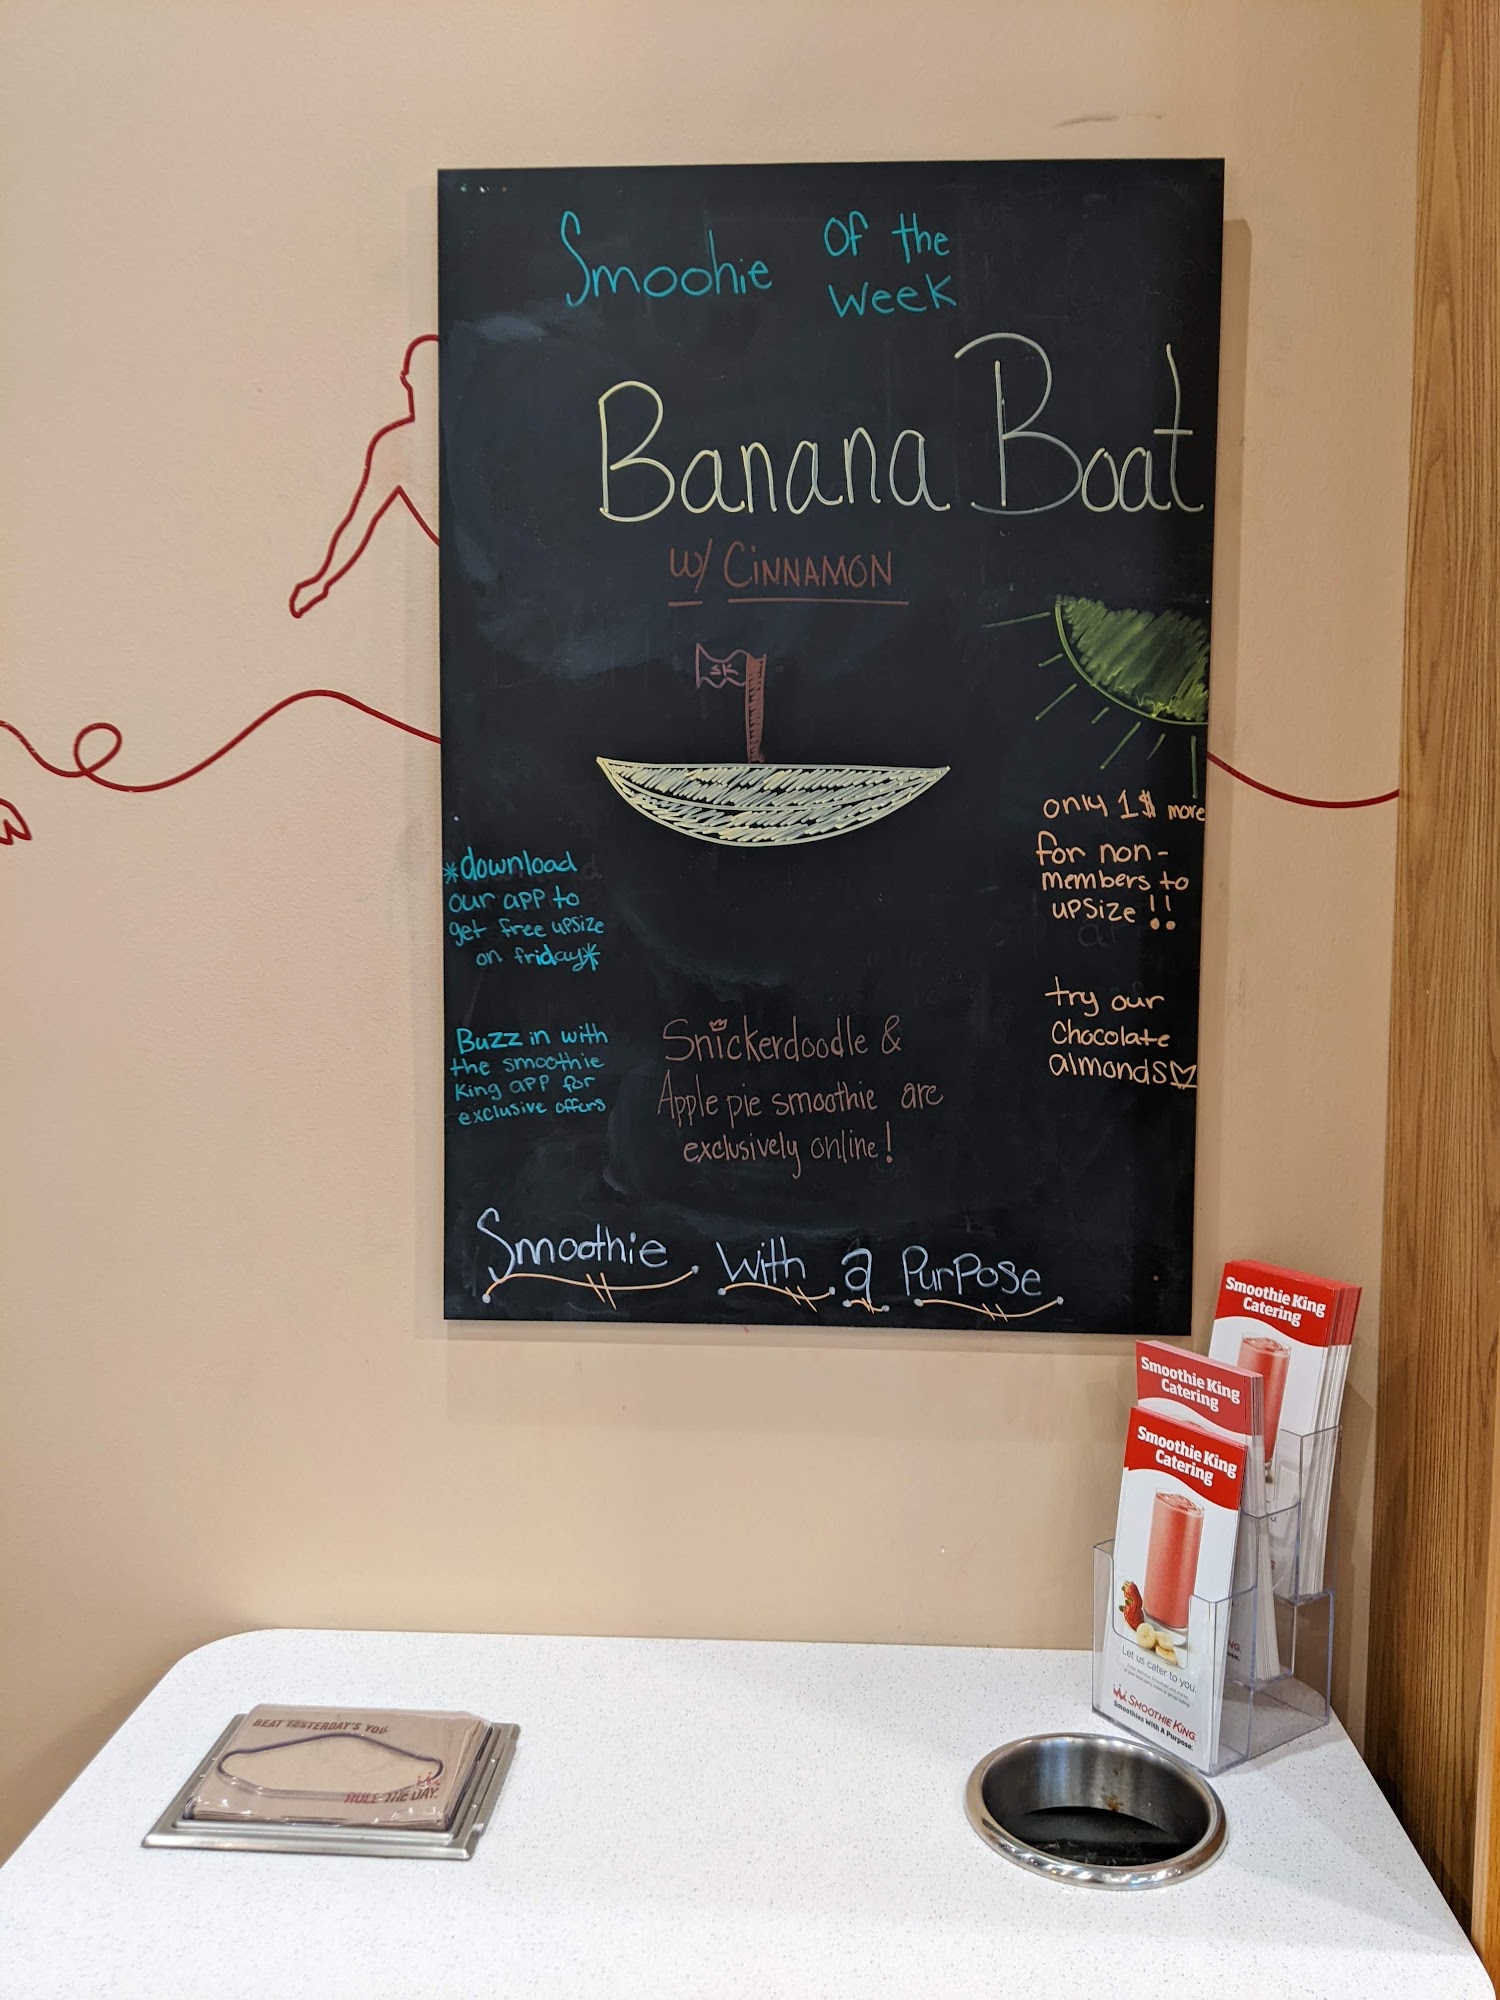 Smoohie of the
week
Banana Boat
w/ CINNAMON
SK
only 1$ more
for non-
members to
upsize!!
*download
our app to
get free upsize
on friday*
try our
Chocolate
almonds
Buzz in with
the smoothie
King app for
exclusive offers
Snickerdoodle &
Apple pie smoothie are
exclusively online!
Smoothie with a Purpose
Smoothie King
Catering
Smoothie King
Catering
Smoothie King
Catering
Let us cater to you.
SMOOTHIE KING
Smoothies With A Purpose.
BEAT YESTERDAY'S YOU.
RULE THE DAY.